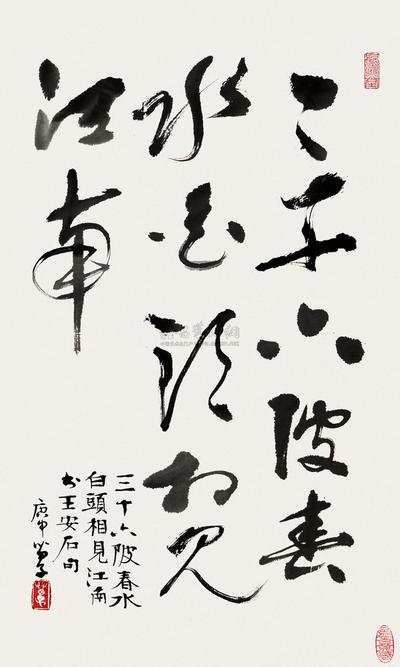 三十六陂春
水白頭相見
江南
三十六陂春水
白頭相見江南
书王安石句
庚申